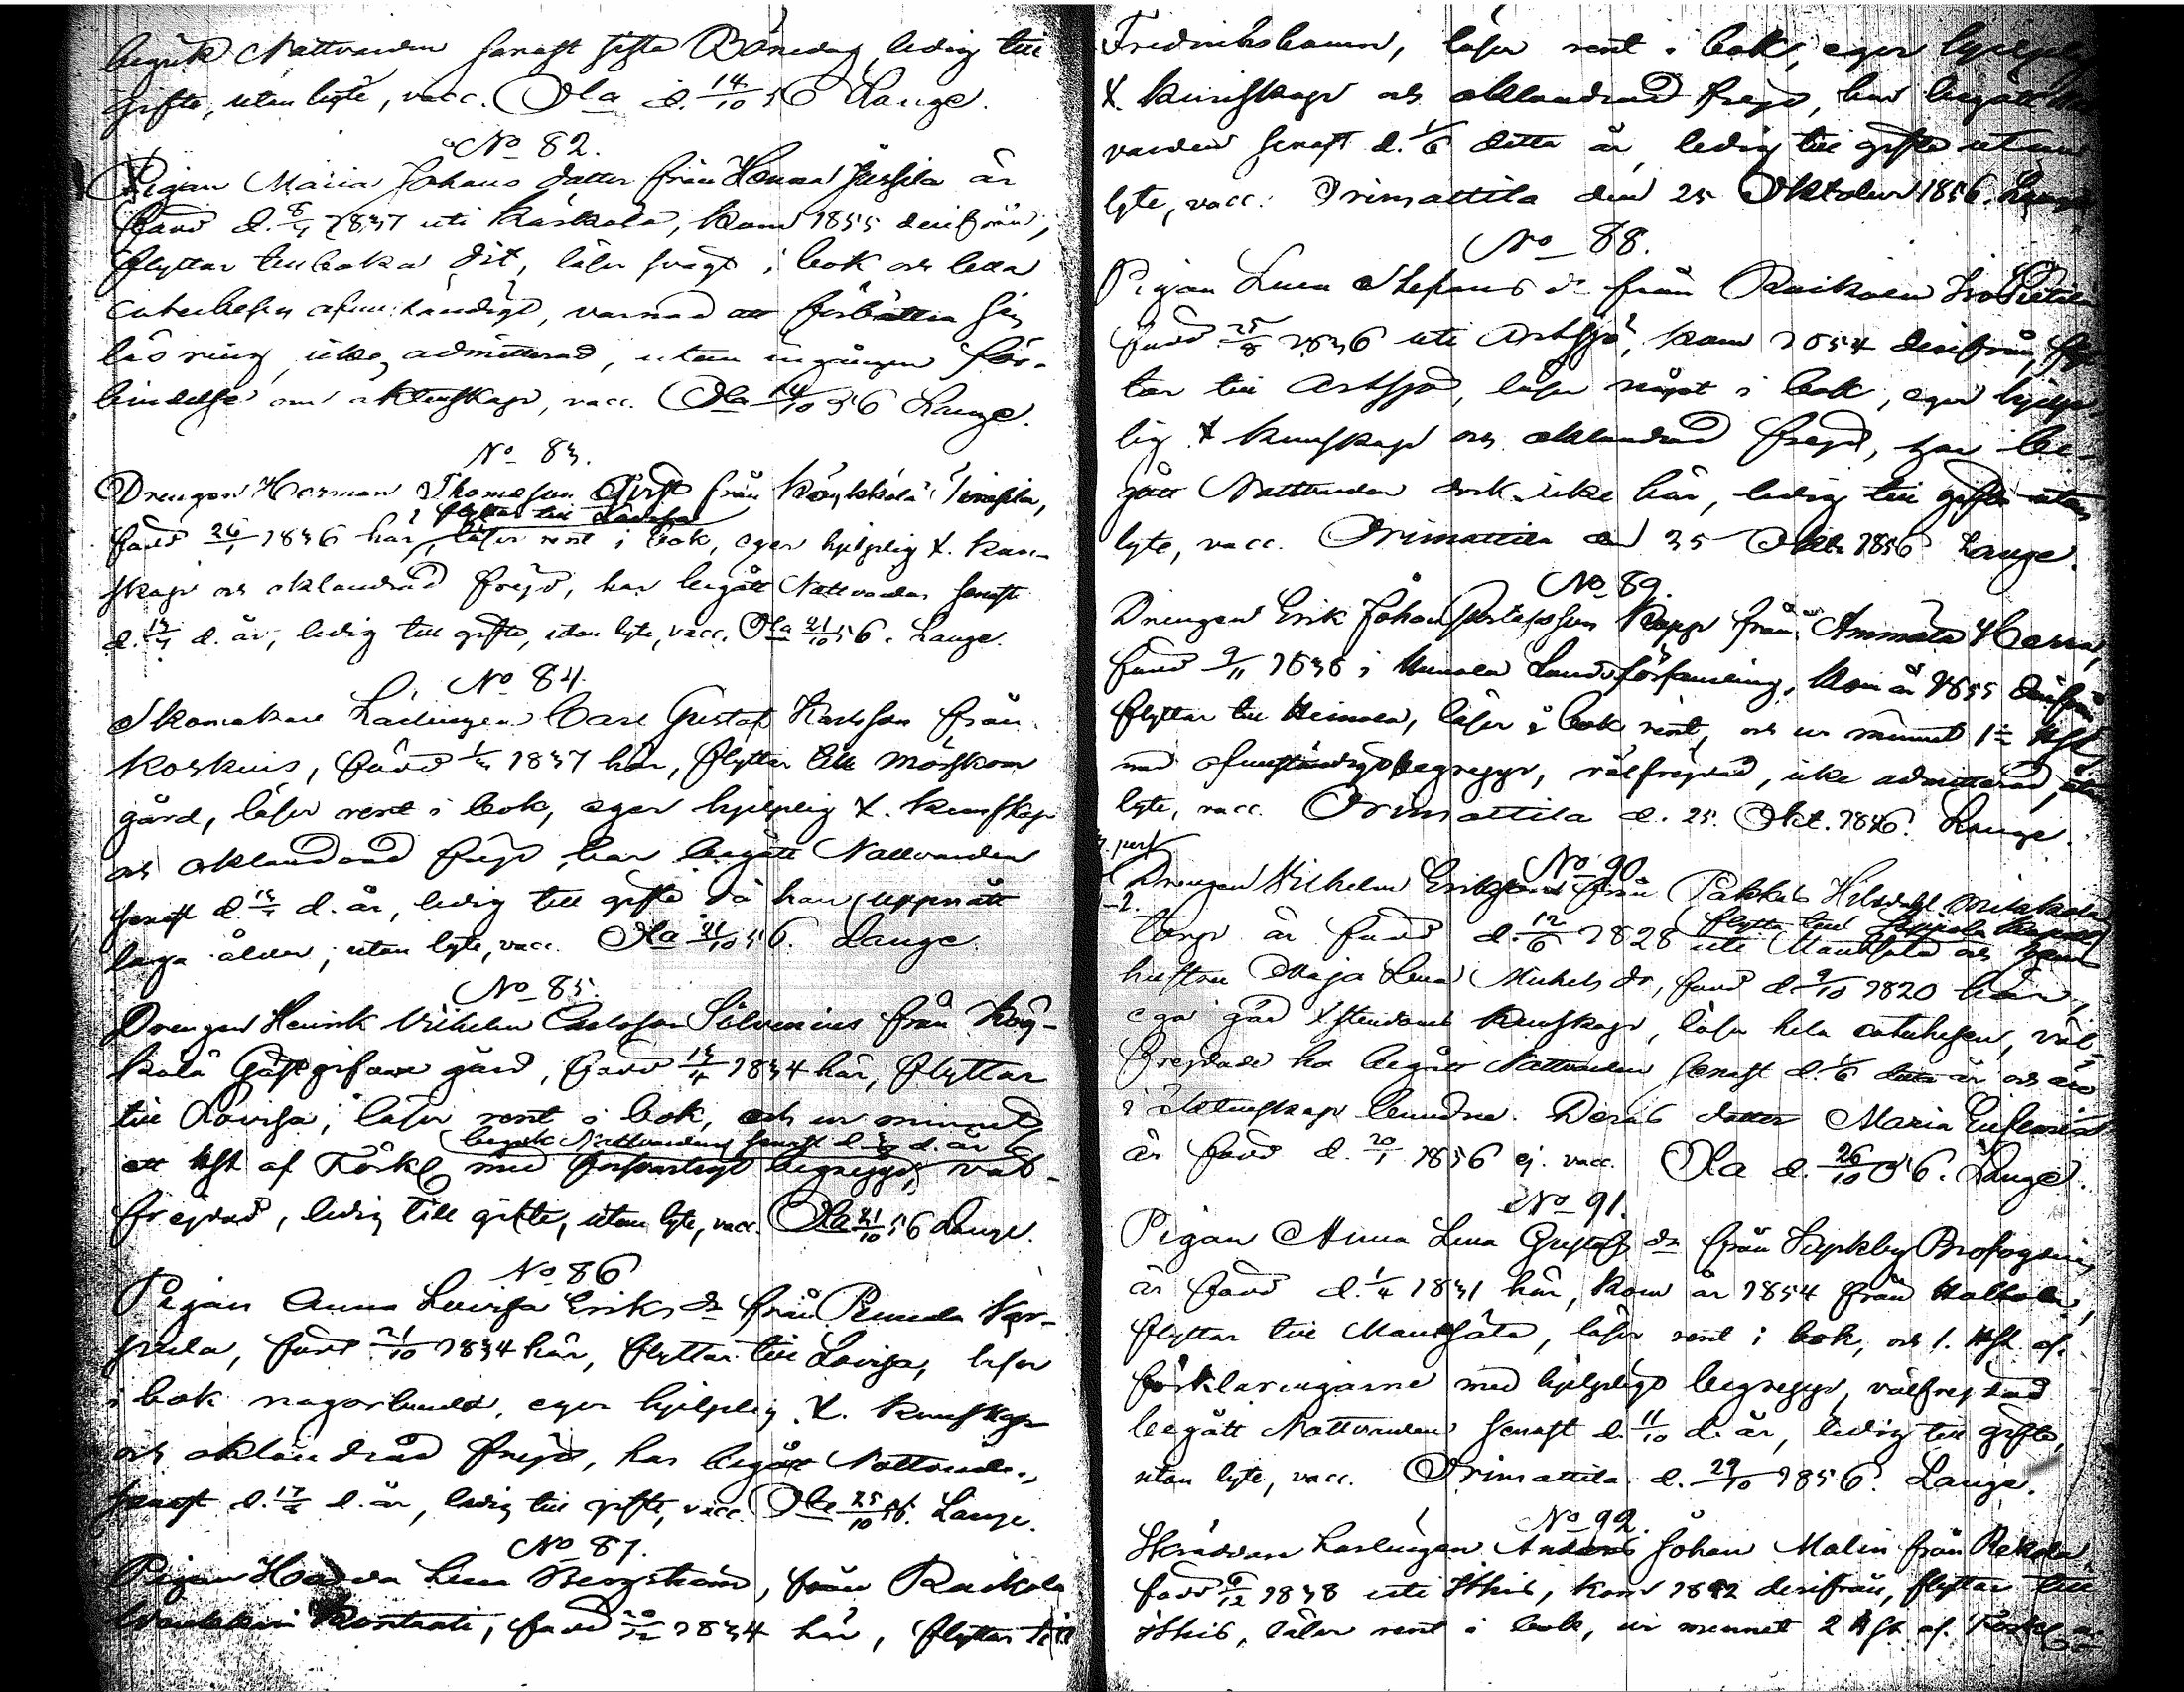 begått Nattvarden senast sista Bönedag, ledig till
gifte, utan lyte, vacc. Ola d. 14/10 56 Lange.
No 82.
Pigan Maria Johans dotter från Henna Jussila är
född d. 8/4 1837 uti Kärkölä, kom 1855 derifrån,
flyttar tillbaka dit, läser svagt i bok och lilla
catechesen ofullständigt, varnad att förbättra sin
läsning, icke admitterad, utan ingången för-
bindelse om äktenskap, vacc. Ola 14/10 56 Lange.
No 83.
Drengen Herman Thomasson från Koykkälä
flyttar till Lovisa
född 26/1 1836 här, läser rent i bok, eger hjelplig X. kun-
skap och oklandrad frejd, har begått Nattvarden senast
d. 13/4 d. år, ledig till gifte, utan lyte, vacc. Ola 21/10 56. Lange.
No 84.
Skomakare Lärlingen Carl Gustaf Karlsson från
Koskuis, född 1/3 1837 här, flyttar till Mörskom
gård, läser rent i bok, eger hjelplig X. kunskap
och oklandrad frejd, har begått Nattvarden
senast d. 13/4 d. år, ledig till gifte då han uppnått
laga ålder, utan lyte, vacc. Ola 21/10 56. Lange.
No 85.
Drengen Henrik Vilhelm Carlsson Silvenius från Koy-
kälä Gästgifvare gård, född 13/4 1834 här, flyttar
till Lovisa, läser rent i bok, och ur minnet
begick Nattvarden senast d. d. år
ett Hft af Förkl med försvarligt begrepp, väl-
frejdad, ledig till gifte, utan lyte, vacc. Ola 21/10 56 Lange.
No 86
Pigan Anna Lovisa Eriks dr från
född 21/10 1834 här, flyttar till Lovisa, läser
i bok någorlunda, eger hjelplig X. kunskap
och oklandrad frejd, har begått Nattvarden
senast d. d. år, ledig till gifte, vacc. Ola 25/10 56. Lange.
No 87.
Pigan Hedda Lena Bergström, från Raikola
född 20/12 1834 här, flyttar till
Fredrikshamn, läser rent i bok, eger hjelplig
X. kunskap och oklandrad frejd, har begått Natt-
varden senast d. 1/6 detta år, ledig till gifte utan
lyte, vacc. Orimattila den 25 Oktober 1856. Lange
No 88.
Pigan Lena Stefans dr från Raikola Iso Pietilä
född 25/8 1836 uti Artsjö, kom 1854 derifrån, flyt-
tar till Artsjö, läser något i bok, eger hjelp-
lig X kunskap och oklandrad frejd, har be-
gått Nattvarden dock icke här, ledig till gifte utan
lyte, vacc. Orimattila den 25 Oktbr 1856 Lange.
No 89.
Drengen Erik Johan Gustafsson Rapp från Ammäla
född 9/11 1838 i Hollola Landsförsamling, kom år 1855 derifrån
flyttar till Heinola, läser i bok rent, och ur minnet 1 Hft
med ofullständigt begrepp, välfrejdad, icke admitterad, utan
lyte, vacc. Orimattila d. 25. Okt. 1856. Lange.
No 90
Drengen Vilhelm Eriksson från Pakkas
flytta till
torp är född d. 12/6 1828 uti Mäntsälä och hans
hustru Maja Lena Michels dr, född d. 9/10 1820 här,
ega god Xstendoms kunskap, läsa hela catechesen, väl-
frejdade ha begått Nattvarden senast d. 1/6 detta år och äro
i äktenskap bundne. Deras dotter Maria Eufemia
är född d. 20/1 1856 ej. vacc. Ola d. 26/10 56. Lange.
No 91.
Pigan Anna Lena Gustafs dr från Kyrkby Brofogdens,
är född d. 1/4 1831 här, kom år 1854 från Hollola,
flyttar till Mäntsälä, läser rent i bok, och 1. Hft. af.
förklaringarne med hjelpligt begrepp, välfrejdad
begått Nattvarden senast d. 11/10 d. år, ledig till gifte,
utan lyte, vacc. Orimattila. d. 29/10 1856. Lange.
No 92.
Skräddare Lärlingen Anders Johan Malin från Rekola
född 6/12 1838 uti Itthis, kom 1842 derifrån, flyttar till
Itthis, läser rent i bok, ur minnet 2 Hft. af. Förkl